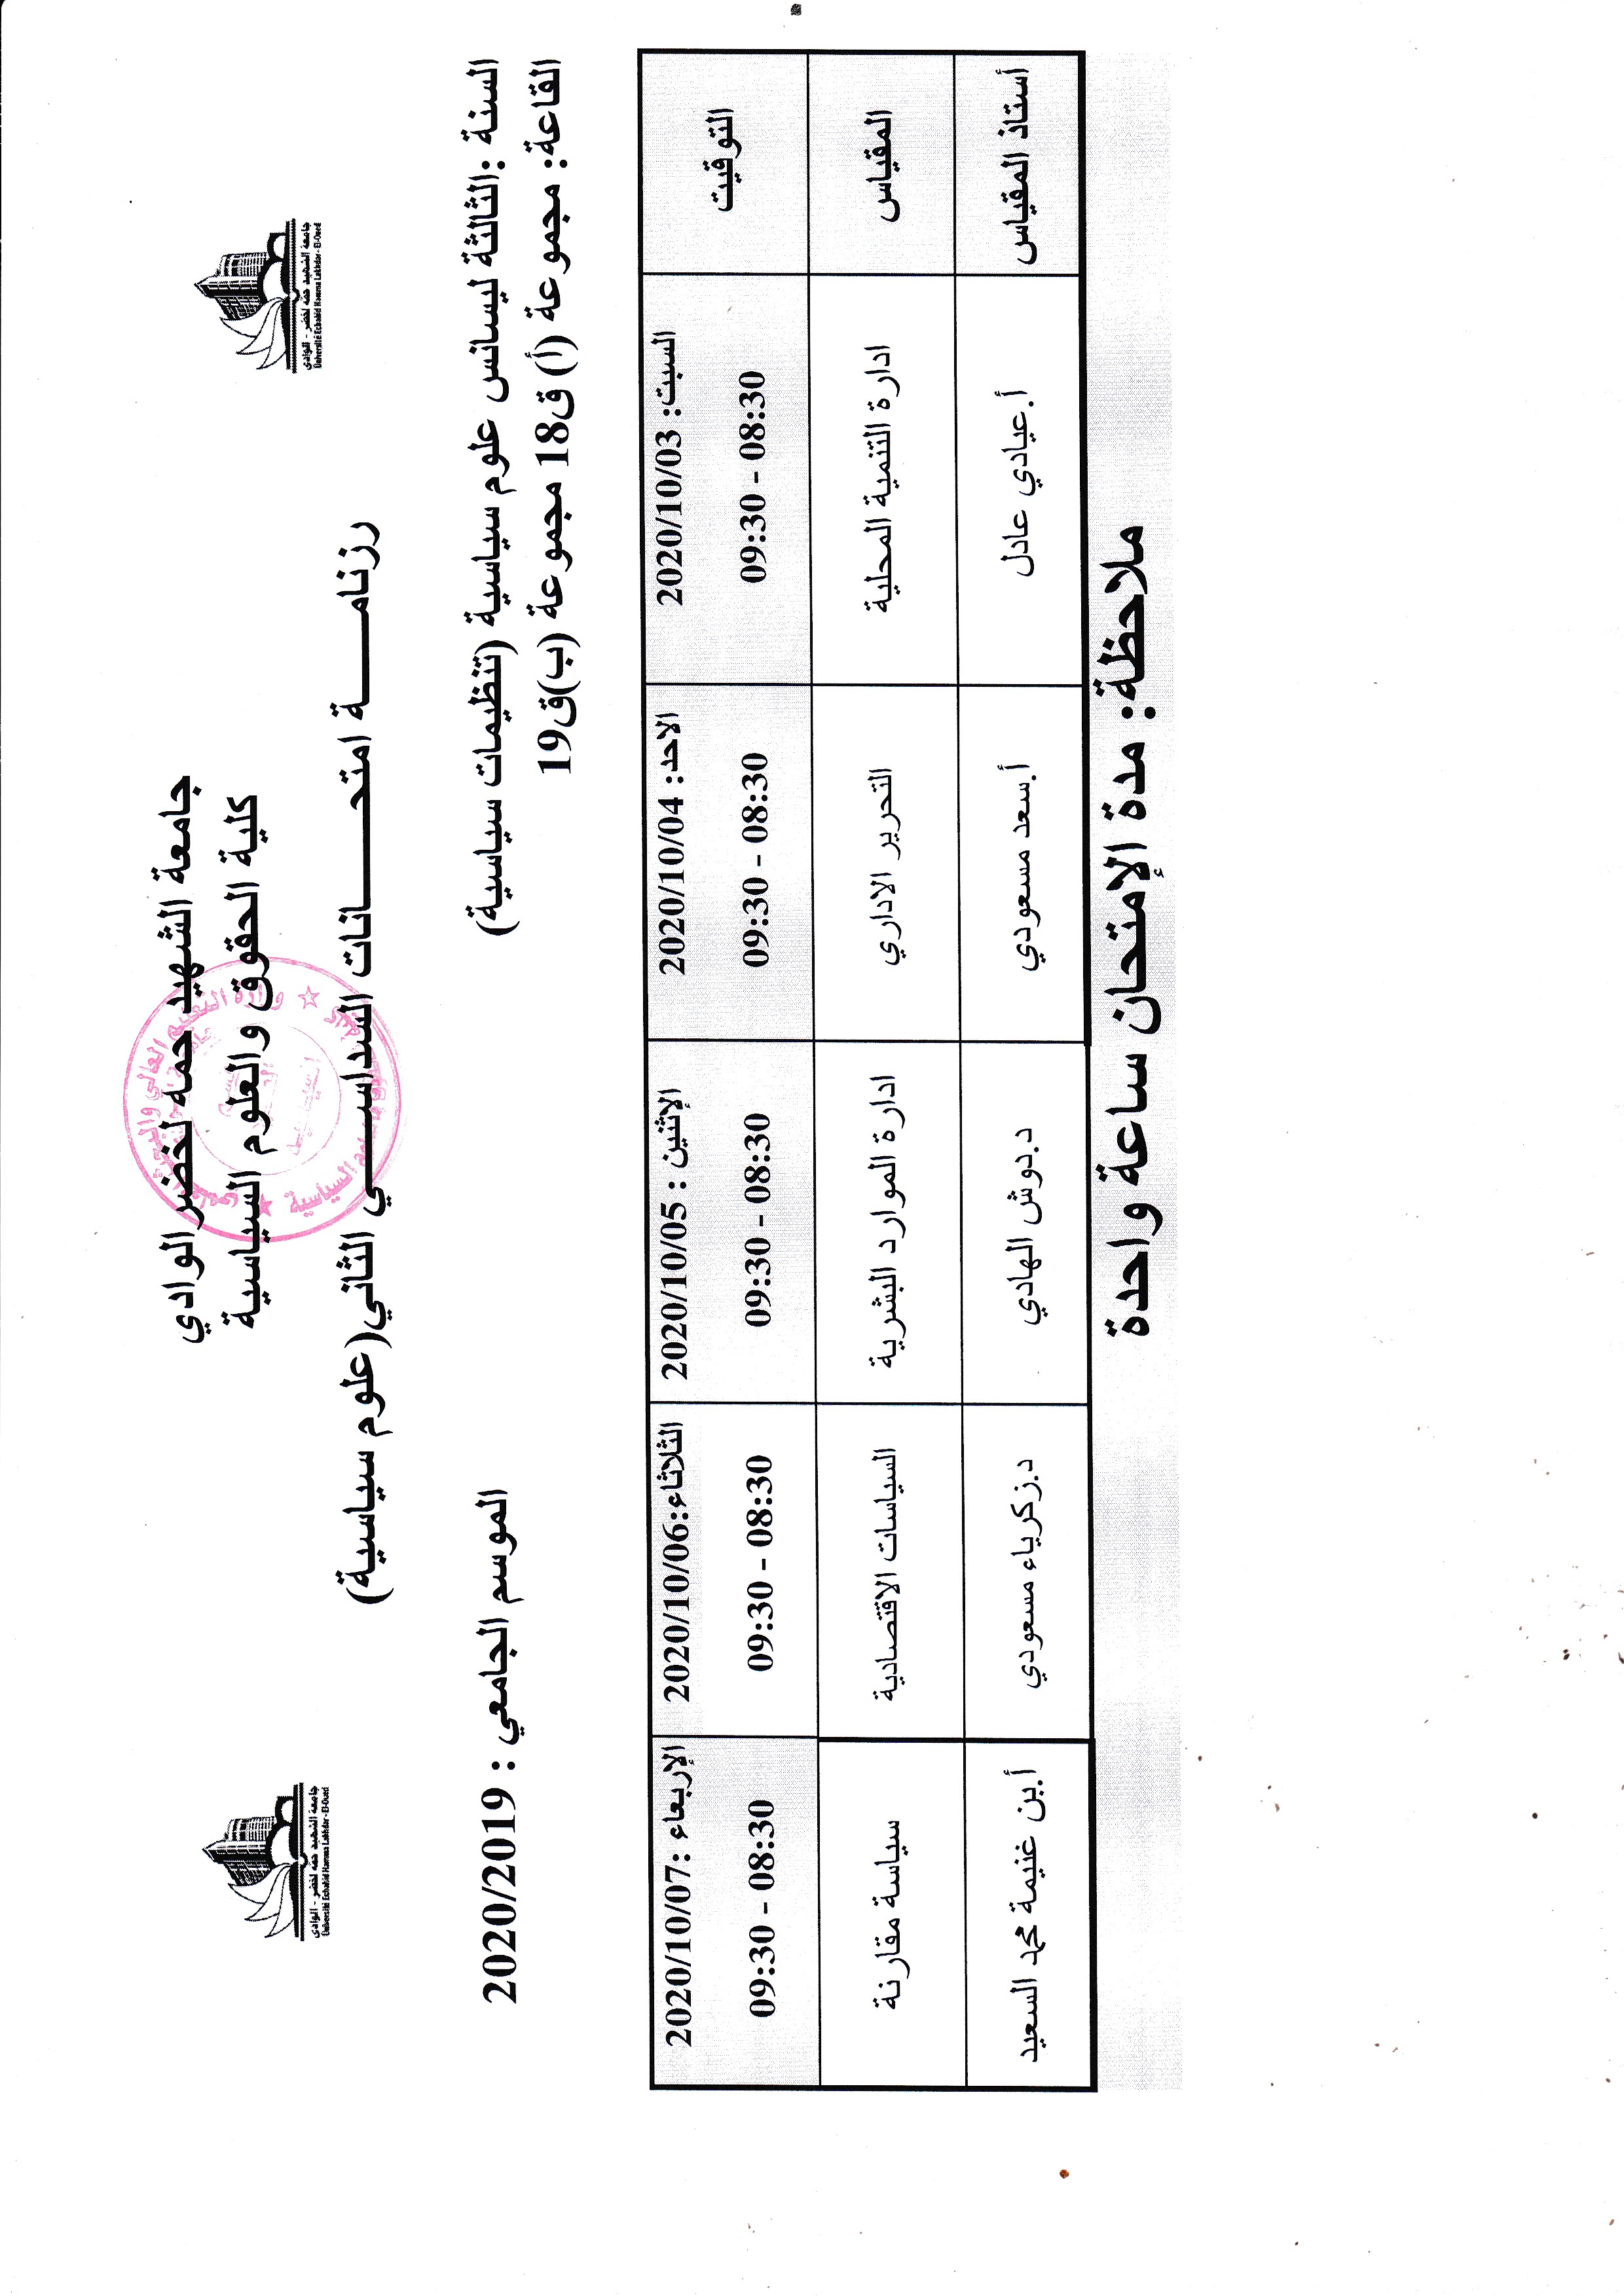 جامعة الشهيد حمه لخضر الوادي
كلية الحقوق والعلوم السياسية
رزنامـــــة امتحـــــانات السداســـــي الثاني(علوم سياسية)
جامعة الشهيد حمه لخضر - الوادي
Université Echahid Hamma Lakhdar - El-Oued
جامعة الشهيد حمه لخضر - الوادي
Université Echahid Hamma Lakhdar - El-Oued
السنة :الثالثة ليسانس علوم سياسية (تنظيمات سياسية)
الموسم الجامعي : 2020/2019
القاعة: مجموعة (أ) ق18 مجموعة (ب)ق19
التوقيت
السبت: 2020/10/03
09:30 - 08:30
الاحد: 2020/10/04
09:30 - 08:30
الإثنين : 2020/10/05
09:30 - 08:30
الثلاثاء:2020/10/06
09:30 - 08:30
الإربعاء :2020/10/07
09:30 - 08:30
المقياس
ادارة التنمية المحلية
التحرير الاداري
ادارة الموارد البشرية
السياسات الاقتصادية
سياسة مقارنة
أستاذ المقياس
أ.عيادي عادل
أ.سعد مسعودي
د.دوش الهادي
د.زكرياء مسعودي
أ.بن غنيمة محمد السعيد
ملاحظة: مدة الإمتحان ساعة واحدة